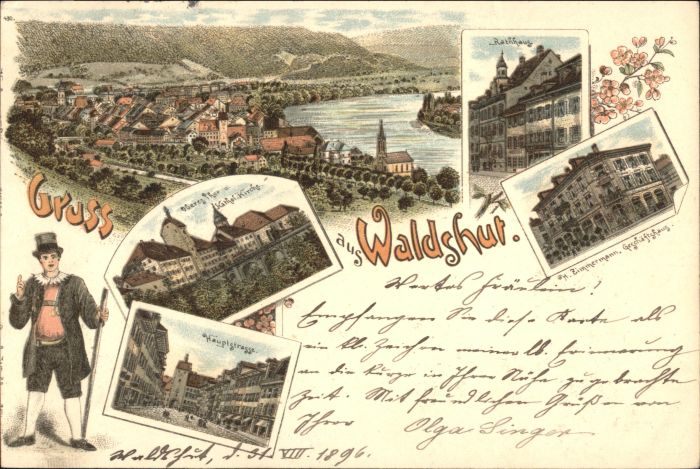 430.
Rathhaus
Gruss
aus Waldshut.
Oberes Thor
Kathol. Kirche
H. Zimmermann, Geschäftshaus.
Hauptstrasse.
Wertes Fräulein!
Empfangen Sie diese Karte als
ein kl. Zeichen meiner lb. Erinnerung
an die kurze in Ihrer Nähe zugebrachte
Zeit. Mit freundlichen Grüßen von
Ihrer Olga Singer
Waldshut, d. 31 VIII. 1896.